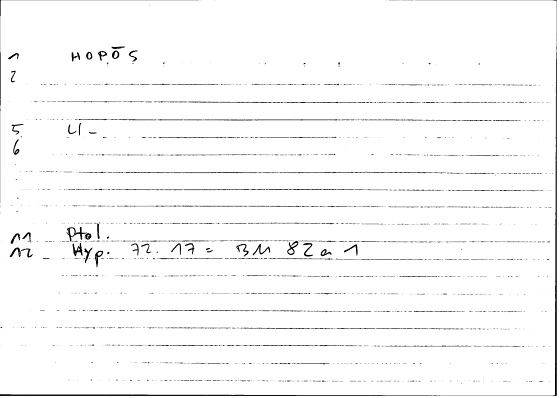 1 HOPŌS
2
5 U-
6
11 Ptol.
12 Hyp. 72.17 = BM 82 a 1